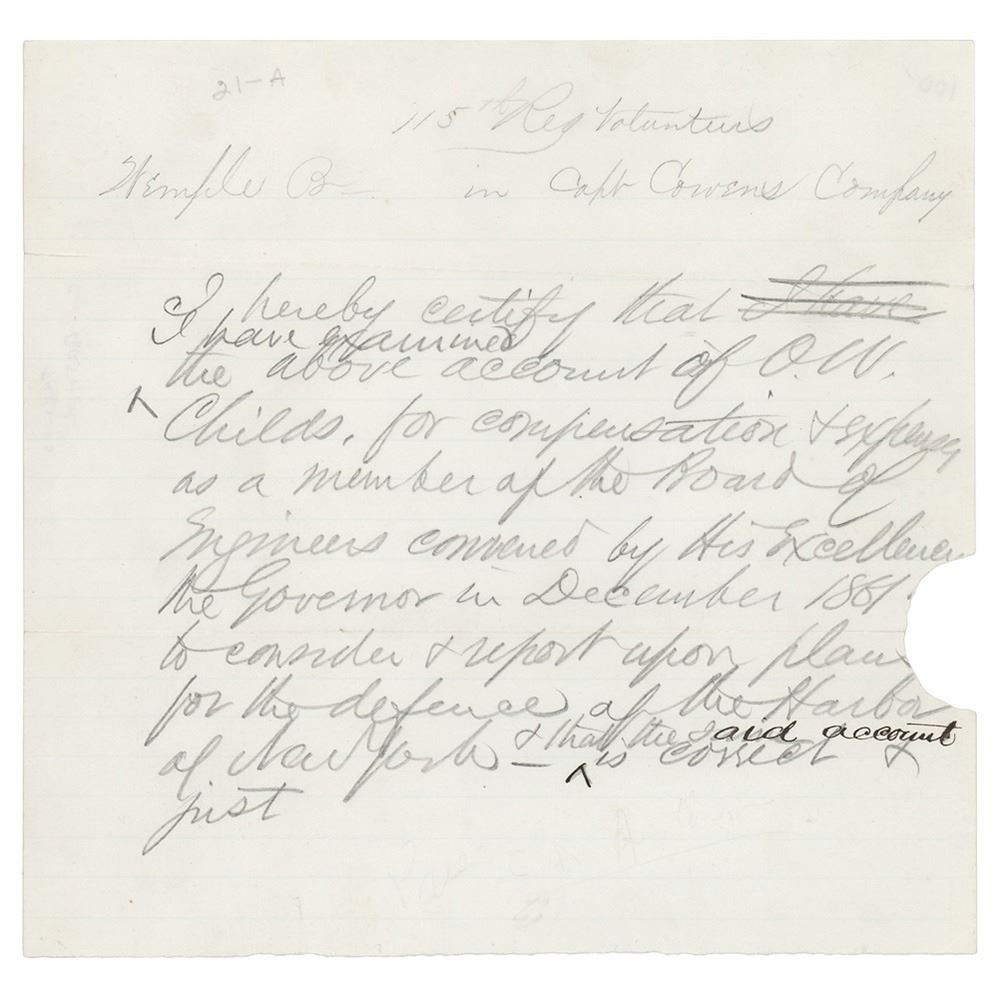 21-A
100
115th Reg Volunteers
Wemple B— in Capt Cowens Company
I hereby certify that I have
I have examined
the above account of O.W.
^
Childs, for compensation & expenses
as a member of the Board of
Engineers convened by His Excellency
the Governor in December 1861
to consider & report upon plans
for the defence of the Harbor
& that the said account
of New York — ^ is correct &
just